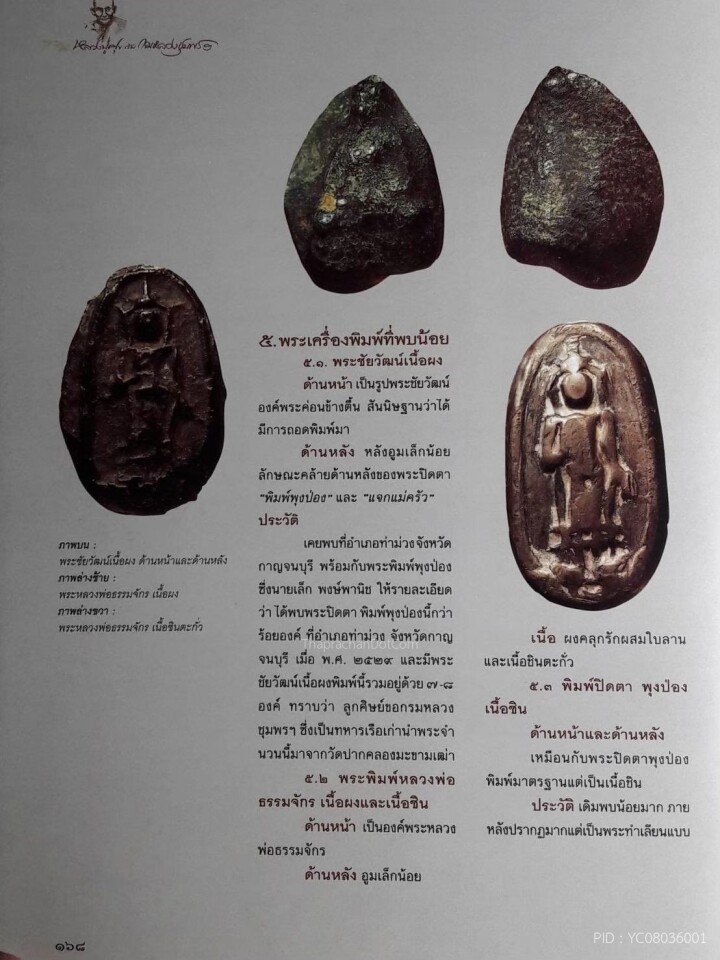 หลวงปู่ศุข และ กรมหลวงชุมพรฯ
๕. พระเครื่องพิมพ์ที่พบน้อย
๕.๑. พระชัยวัฒน์เนื้อผง
ด้านหน้า เป็นรูปพระชัยวัฒน์
องค์พระค่อนข้างตื้น สันนิษฐานว่าได้
มีการถอดพิมพ์มา
ด้านหลัง หลังอูมเล็กน้อย
ลักษณะคล้ายด้านหลังของพระปิดตา
“พิมพ์พุงป่อง” และ “แจกแม่ครัว”
ประวัติ
เคยพบที่อำเภอท่าม่วงจังหวัด
กาญจนบุรี พร้อมกับพระพิมพ์พุงป่อง
ซึ่งนายเล็ก พงษ์พานิช ให้รายละเอียด
ว่า ได้พบพระปิดตา พิมพ์พุงป่องนี้กว่า
ร้อยองค์ ที่อำเภอท่าม่วง จังหวัดกาญ
จนบุรี เมื่อ พ.ศ. ๒๕๒๙ และมีพระ
ชัยวัฒน์เนื้อผงพิมพ์นี้รวมอยู่ด้วย ๗-๘
องค์ ทราบว่า ลูกศิษย์ของกรมหลวง
ชุมพรฯ ซึ่งเป็นทหารเรือเก่านำพระจำ
นวนนี้มาจากวัดปากคลองมะขามเฒ่า
๕.๒ พระพิมพ์หลวงพ่อ
ธรรมจักร เนื้อผงและเนื้อชิน
ด้านหน้า เป็นองค์พระหลวง
พ่อธรรมจักร
ด้านหลัง อูมเล็กน้อย
ภาพบน :
พระชัยวัฒน์เนื้อผง ด้านหน้าและด้านหลัง
ภาพล่างซ้าย :
พระหลวงพ่อธรรมจักร เนื้อผง
ภาพล่างขวา :
พระหลวงพ่อธรรมจักร เนื้อชินตะกั่ว
เนื้อ ผงคลุกรักผสมใบลาน
และเนื้อชินตะกั่ว
๕.๓ พิมพ์ปิดตา พุงป่อง
เนื้อชิน
ด้านหน้าและด้านหลัง
เหมือนกับพระปิดตาพุงป่อง
พิมพ์มาตรฐานแต่เป็นเนื้อชิน
ประวัติ เดิมพบน้อยมาก ภาย
หลังปรากฏมากแต่เป็นพระทำเลียนแบบ
ThaprachanDotCom
๑๖๘
PID : YC08036001